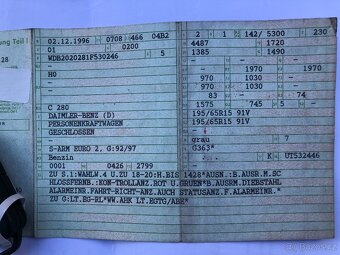 ung Teil I
28
02.12.1996 0708 466 04B2
01 0200
WDB2020281F530246 5
H0
C 280
DAIMLER-BENZ (D)
PERSONENKRAFTWAGEN
GESCHLOSSEN
S-ARM EURO 2, G:92/97
Benzin
0001 0426 2799
2 1 142/ 5300 230
4487 1720
1385 -
- - 1970 1970
- 970 1030 -
- 970 1030 -
83 74
1575 745 5 -
195/65R15 91V
195/65R15 91V
-
grau 7
G363*
K UT532446
ZU S.1:WAHLW.4 U.ZU 18-20:H.BIS 1428*AUSN.:B.AUSR.M.SC
HLOSSFERNB.:KON-TROLLANZ.ROT U.GRUEN*B.AUSRM.DIEBSTAHL
ALARMEINR.FAHRT-RICHT-ANZ.AUCH STATUSANZ.F.ALARMEINR.*
ZU G:LT.EG-RL*WW.AHK LT.EGTG/ABE*